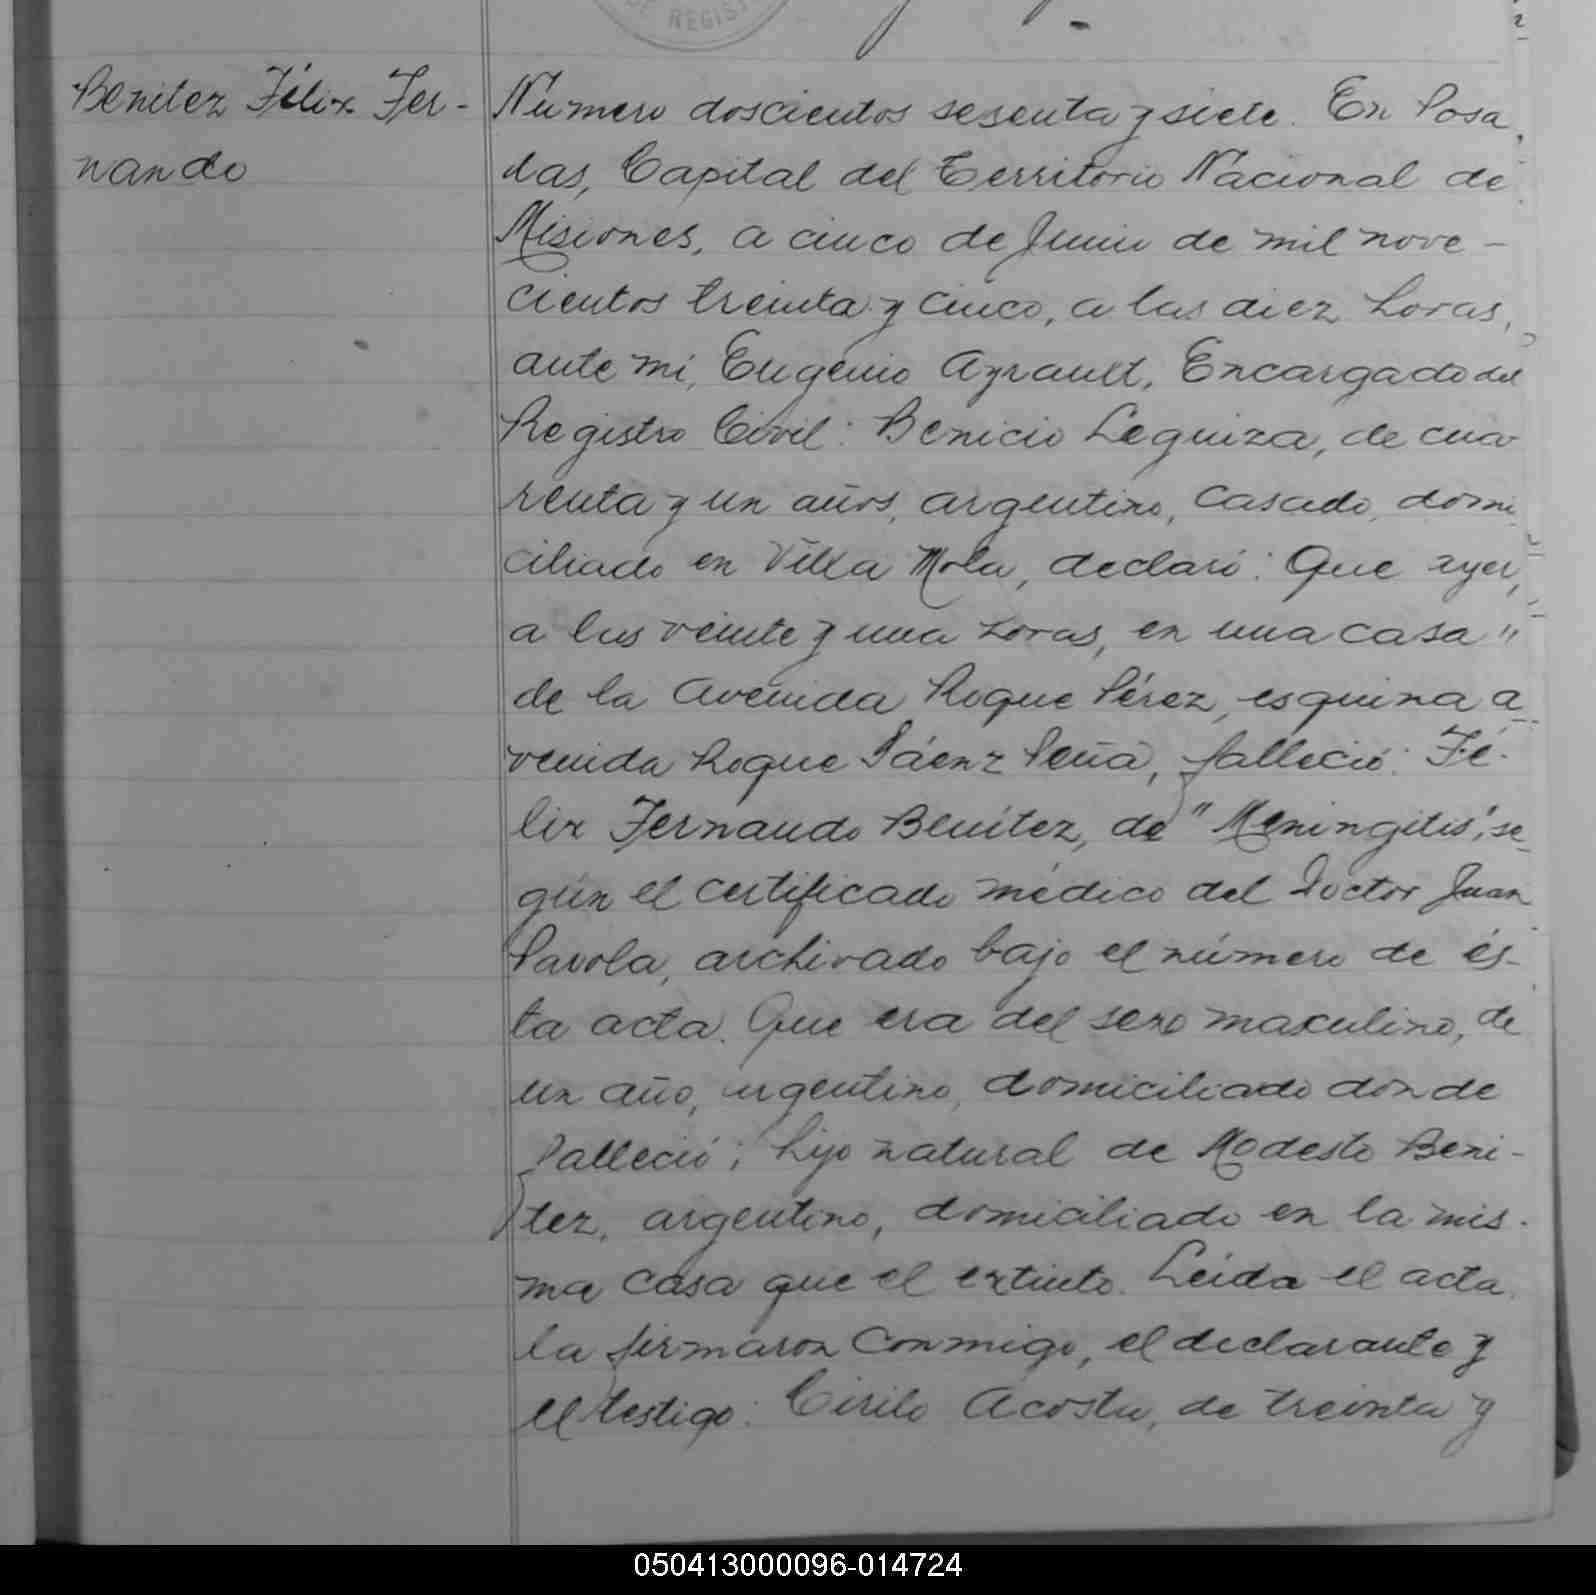 DE REGIST
Benitez Félix Fer-
nando
Número doscientos sesenta y siete. En Posa
das, Capital del Territorio Nacional de
Misiones, a cinco de Junio de mil nove-
cientos treinta y cinco, a las diez horas,
ante mí, Eugenio Ayrault, Encargado del
Registro Civil: Benicio Leguiza, de cua-
renta y un años, argentino, casado, domi
ciliado en Villa Mola, declaró: Que ayer,
a las veinte y una horas, en una casa "
de la Avenida Roque Pérez, esquina a
venida Roque Sáenz Peña, falleció: Fé-
lix Fernando Benítez, de "Meningitis", se
gún el certificado médico del Doctor Juan
Parola, archivado bajo el número de és-
ta acta. Que era del sexo masculino, de
un año, argentino, domiciliado donde
falleció; hijo natural de Modesto Bení-
tez, argentino, domiciliado en la mis-
ma casa que el extinto. Leída el acta
la firmaron conmigo, el declarante y
el testigo: Cirilo Acosta, de treinta y
050413000096-014724